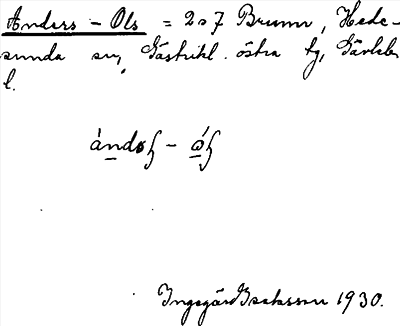 Anders-Ols = 2 o 7 Brunn, Hede-
sunda sn, Gästrikl. östra tg, Gävleb.
l.
Ingegärd Isaksson 1930.